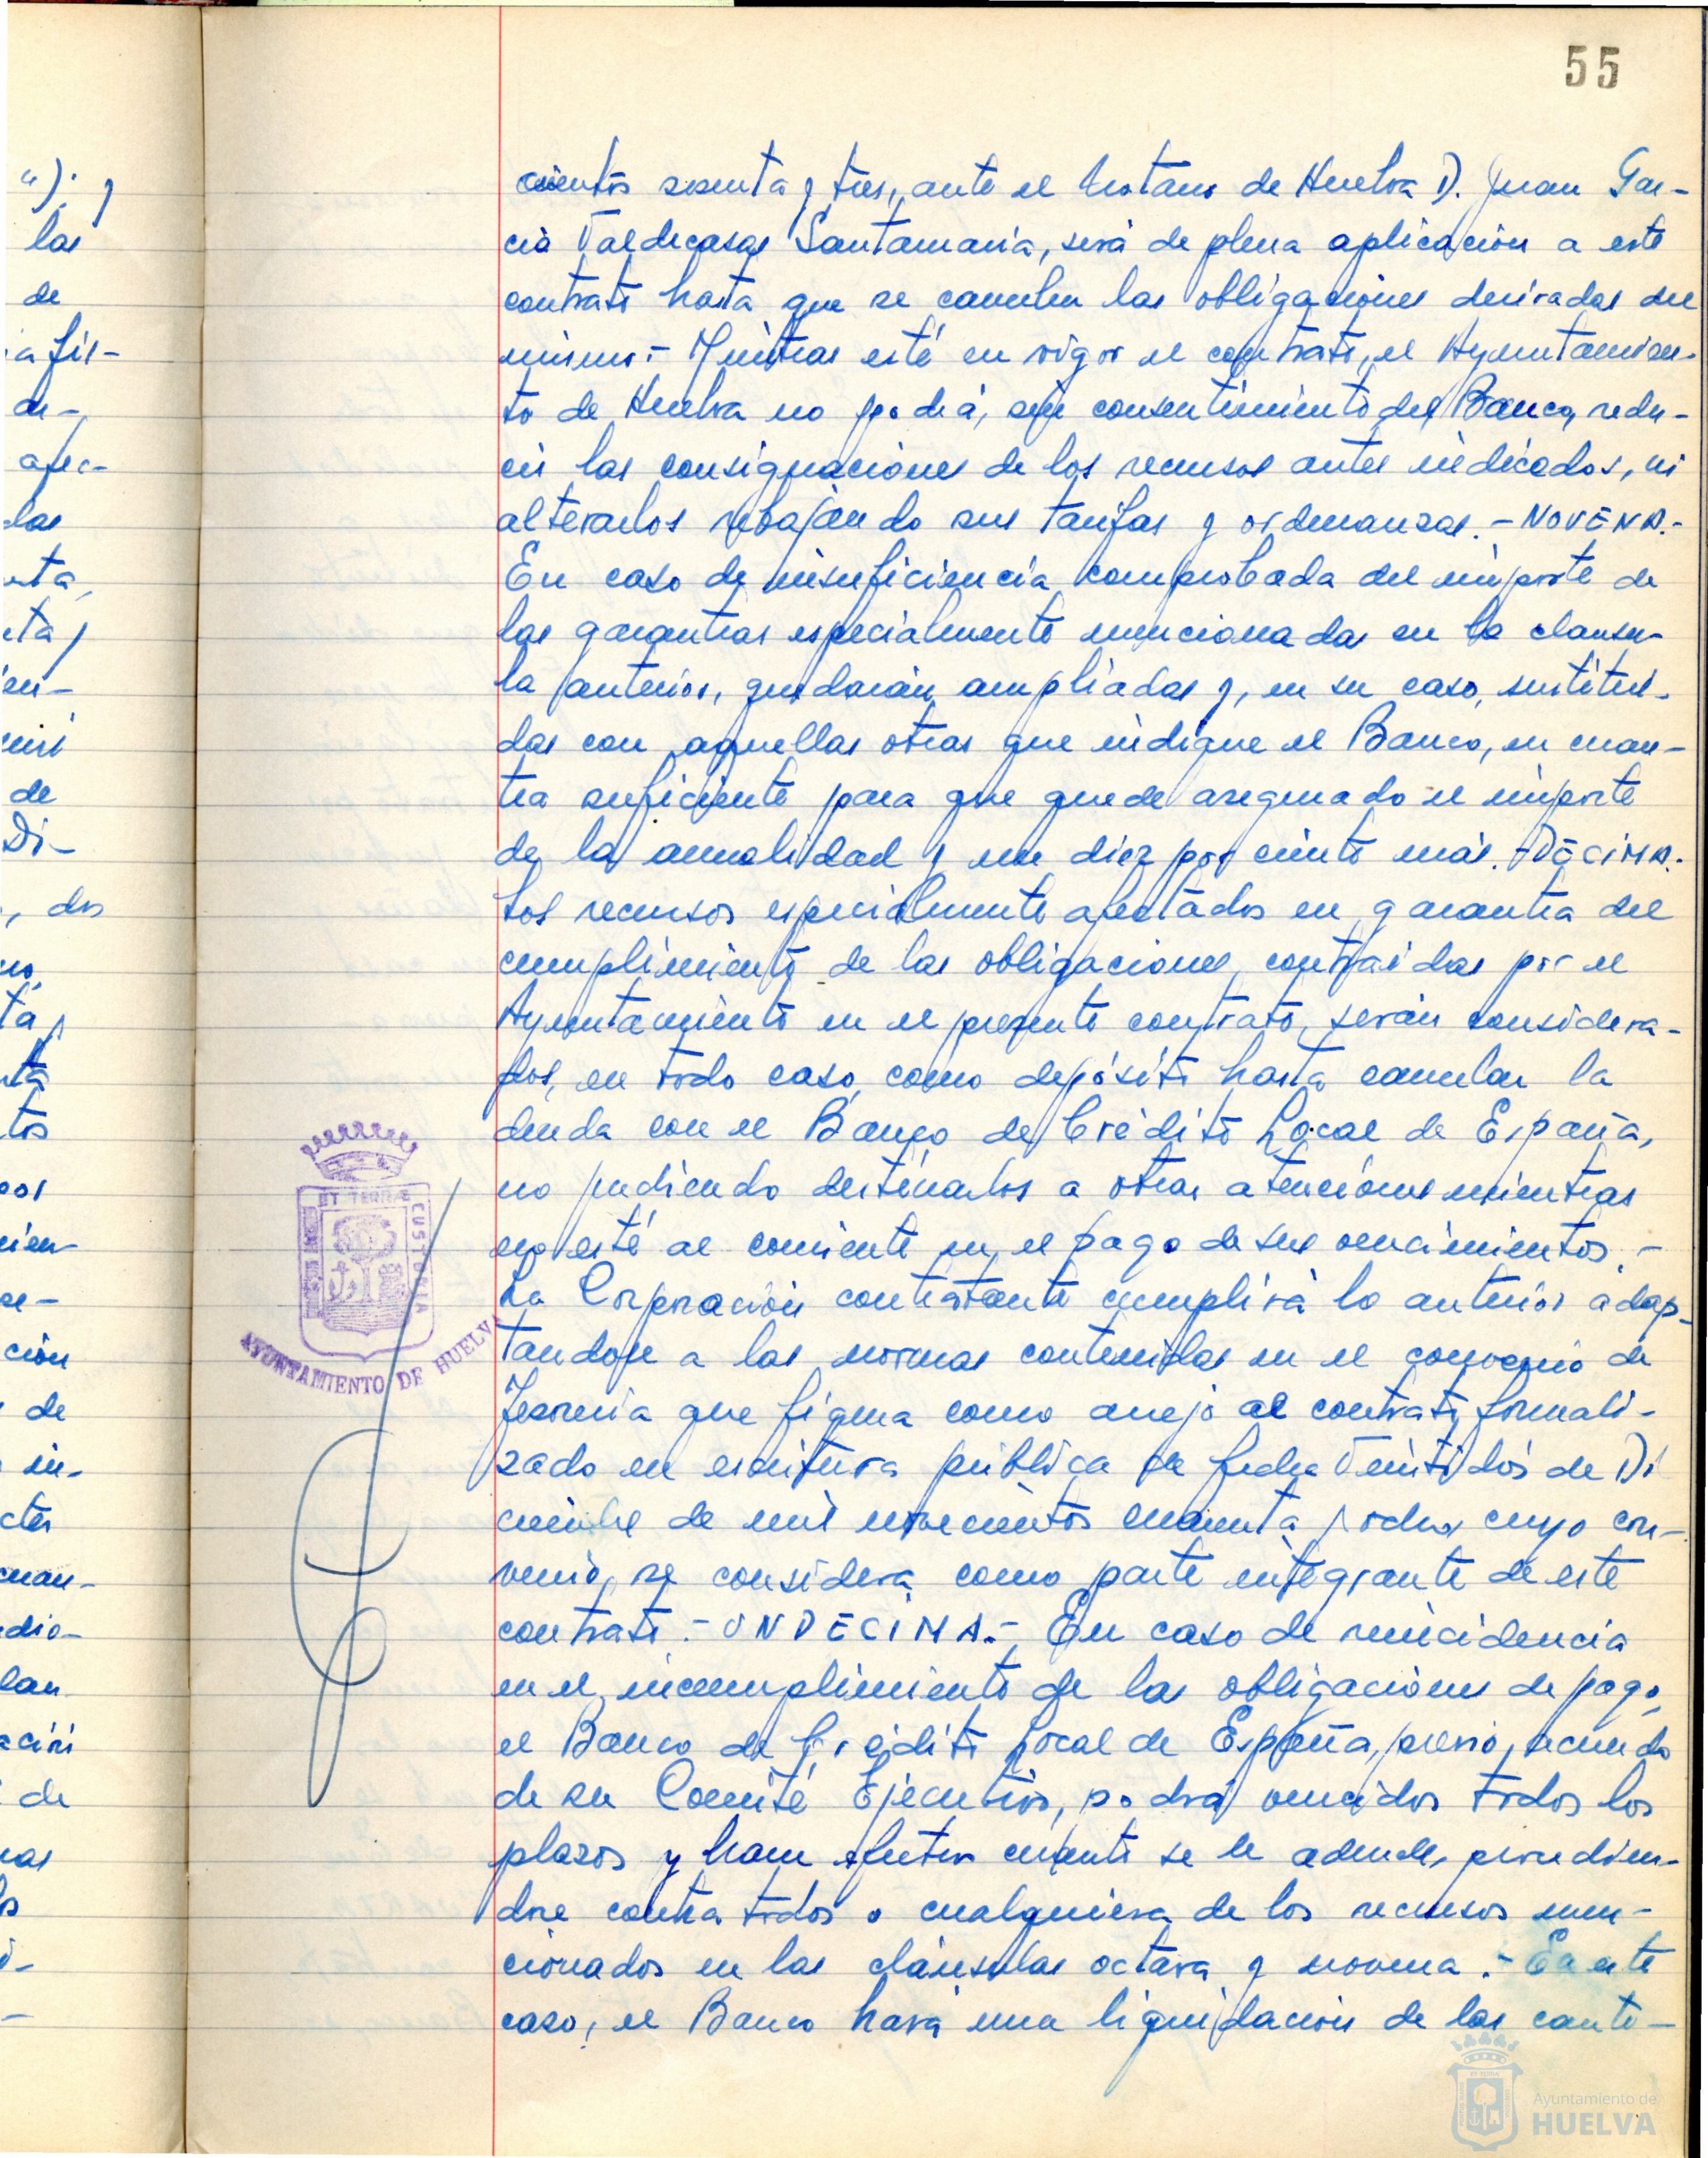 55
cientos sesenta y tres, ante el Notario de Huelva D. Juan Gar-
cia Valdecasas Santamaria, será de plena aplicación a este
contrato hasta que se cancelen las obligaciones derivadas del
mismo.- Mientras esté en vigor el contrato, el Ayuntamien-
to de Huelva no podrá, sin consentimiento del Banco, redu-
cir las consignaciones de los recursos antes indicados, ni
alterarlos rebajando sus tarifas y ordenanzas.- NOVENA.-
En caso de insuficiencia comprobada del importe de
las garantias especialmente mencionadas en la clausu-
la anterior, quedarán ampliadas y, en su caso, sustitui-
das con aquellas otras que indique el Banco, en cuan-
tia suficiente para que quede asegurado el importe
de la anualidad y un diez por ciento más.- DÉCIMA.
Los recursos especialmente afectados en garantia del
cumplimiento de las obligaciones contraidas por el
Ayuntamiento en el presente contrato, serán considera-
dos, en todo caso, como depósito hasta cancelar la
deuda con el Banco de Crédito Local de España,
no pudiendo destinarlos a otras atenciones mientras
no esté al corriente en el pago de sus vencimientos.-
La Corporación contratante cumplirá lo anterior adap-
tandose a las normas contenidas en el convenio de
Tesoreria que figura como anejo al contrato formali-
zado en escritura pública de fecha Veintidós de Di
ciembre de mil novecientos cuyo con-
venio, se considera como parte integrante de este
contrato.- UNDECIMA.- En caso de reincidencia
en el incumplimiento de las obligaciones de pago,
el Banco de Crédito Local de España, previo acuerdo
de su Comité Ejecutivo, podrá vencidos todos los
plazos y hacer efectivo cuanto se le adeude, procedien-
dose contra todos o cualquiera de los recursos men-
cionados en las cláusulas octava y novena.- En este
caso, el Banco hará una liquidación de las canti-
ET TERRÆ CUSTODIA
AYUNTAMIENTO DE HUELVA
Ayuntamiento de
HUELVA